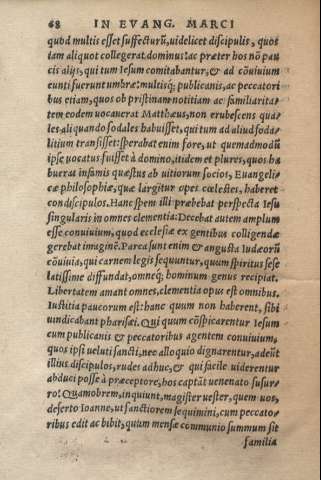 68 IN EVANG. MARCI
quod multis esset suffecturū, uidelicet discipulis, quos
iam aliquot collegerat dominus: ac præter hos nō pau
cis alijs, qui tum Iesum comitabantur, & ad cōuiuium
eunti fuerunt umbræ: multisq; publicanis, ac peccatori
bus etiam, quos ob pristinam notitiam ac familiarita-
tem eodem uocauerat Matthæus, non erubescens qua
les aliquando sodales habuisset, qui tum ad aliud soda-
litium transisset: sperabat enim fore, ut quemadmodū
ipse uocatus fuisset à domino, itidem et plures, quos ha
buerat infamis quæstus ab uitiorum socios, Euangeli-
cæ philosophiæ, quæ largitur opes cœlestes, haberet
condiscipulos. Hanc spem illi præbebat perspecta Iesu
singularis in omnes clementia: Decebat autem amplum
esse conuiuium, quod ecclesiæ ex gentibus colligendæ
gerebat imaginē. Parca sunt enim & angusta Iudæorū
cōuiuia, qui carnem legis sequuntur, quum spiritus sese
latissime diffundat, omneq; hominum genus recipiat.
Libertatem amant omnes, clementia opus est omnibus.
Iustitia paucorum est: hanc quum non haberent, sibi
uindicabant pharisæi. Qui quum cōspicarentur Iesum
cum publicanis & peccatoribus agentem conuiuium,
quos ipsi ueluti sancti, nec alloquio dignarentur, adeūt
illius discipulos, rudes adhuc, & qui facile uiderentur
abduci posse à præceptore, hos captāt uenenato susur-
ro: Quamobrem, inquiunt, magister uester, quem uos,
deserto Ioanne, ut sanctiorem sequimini, cum peccato-
ribus edit ac bibit, quum mensæ communio summum sit
familia